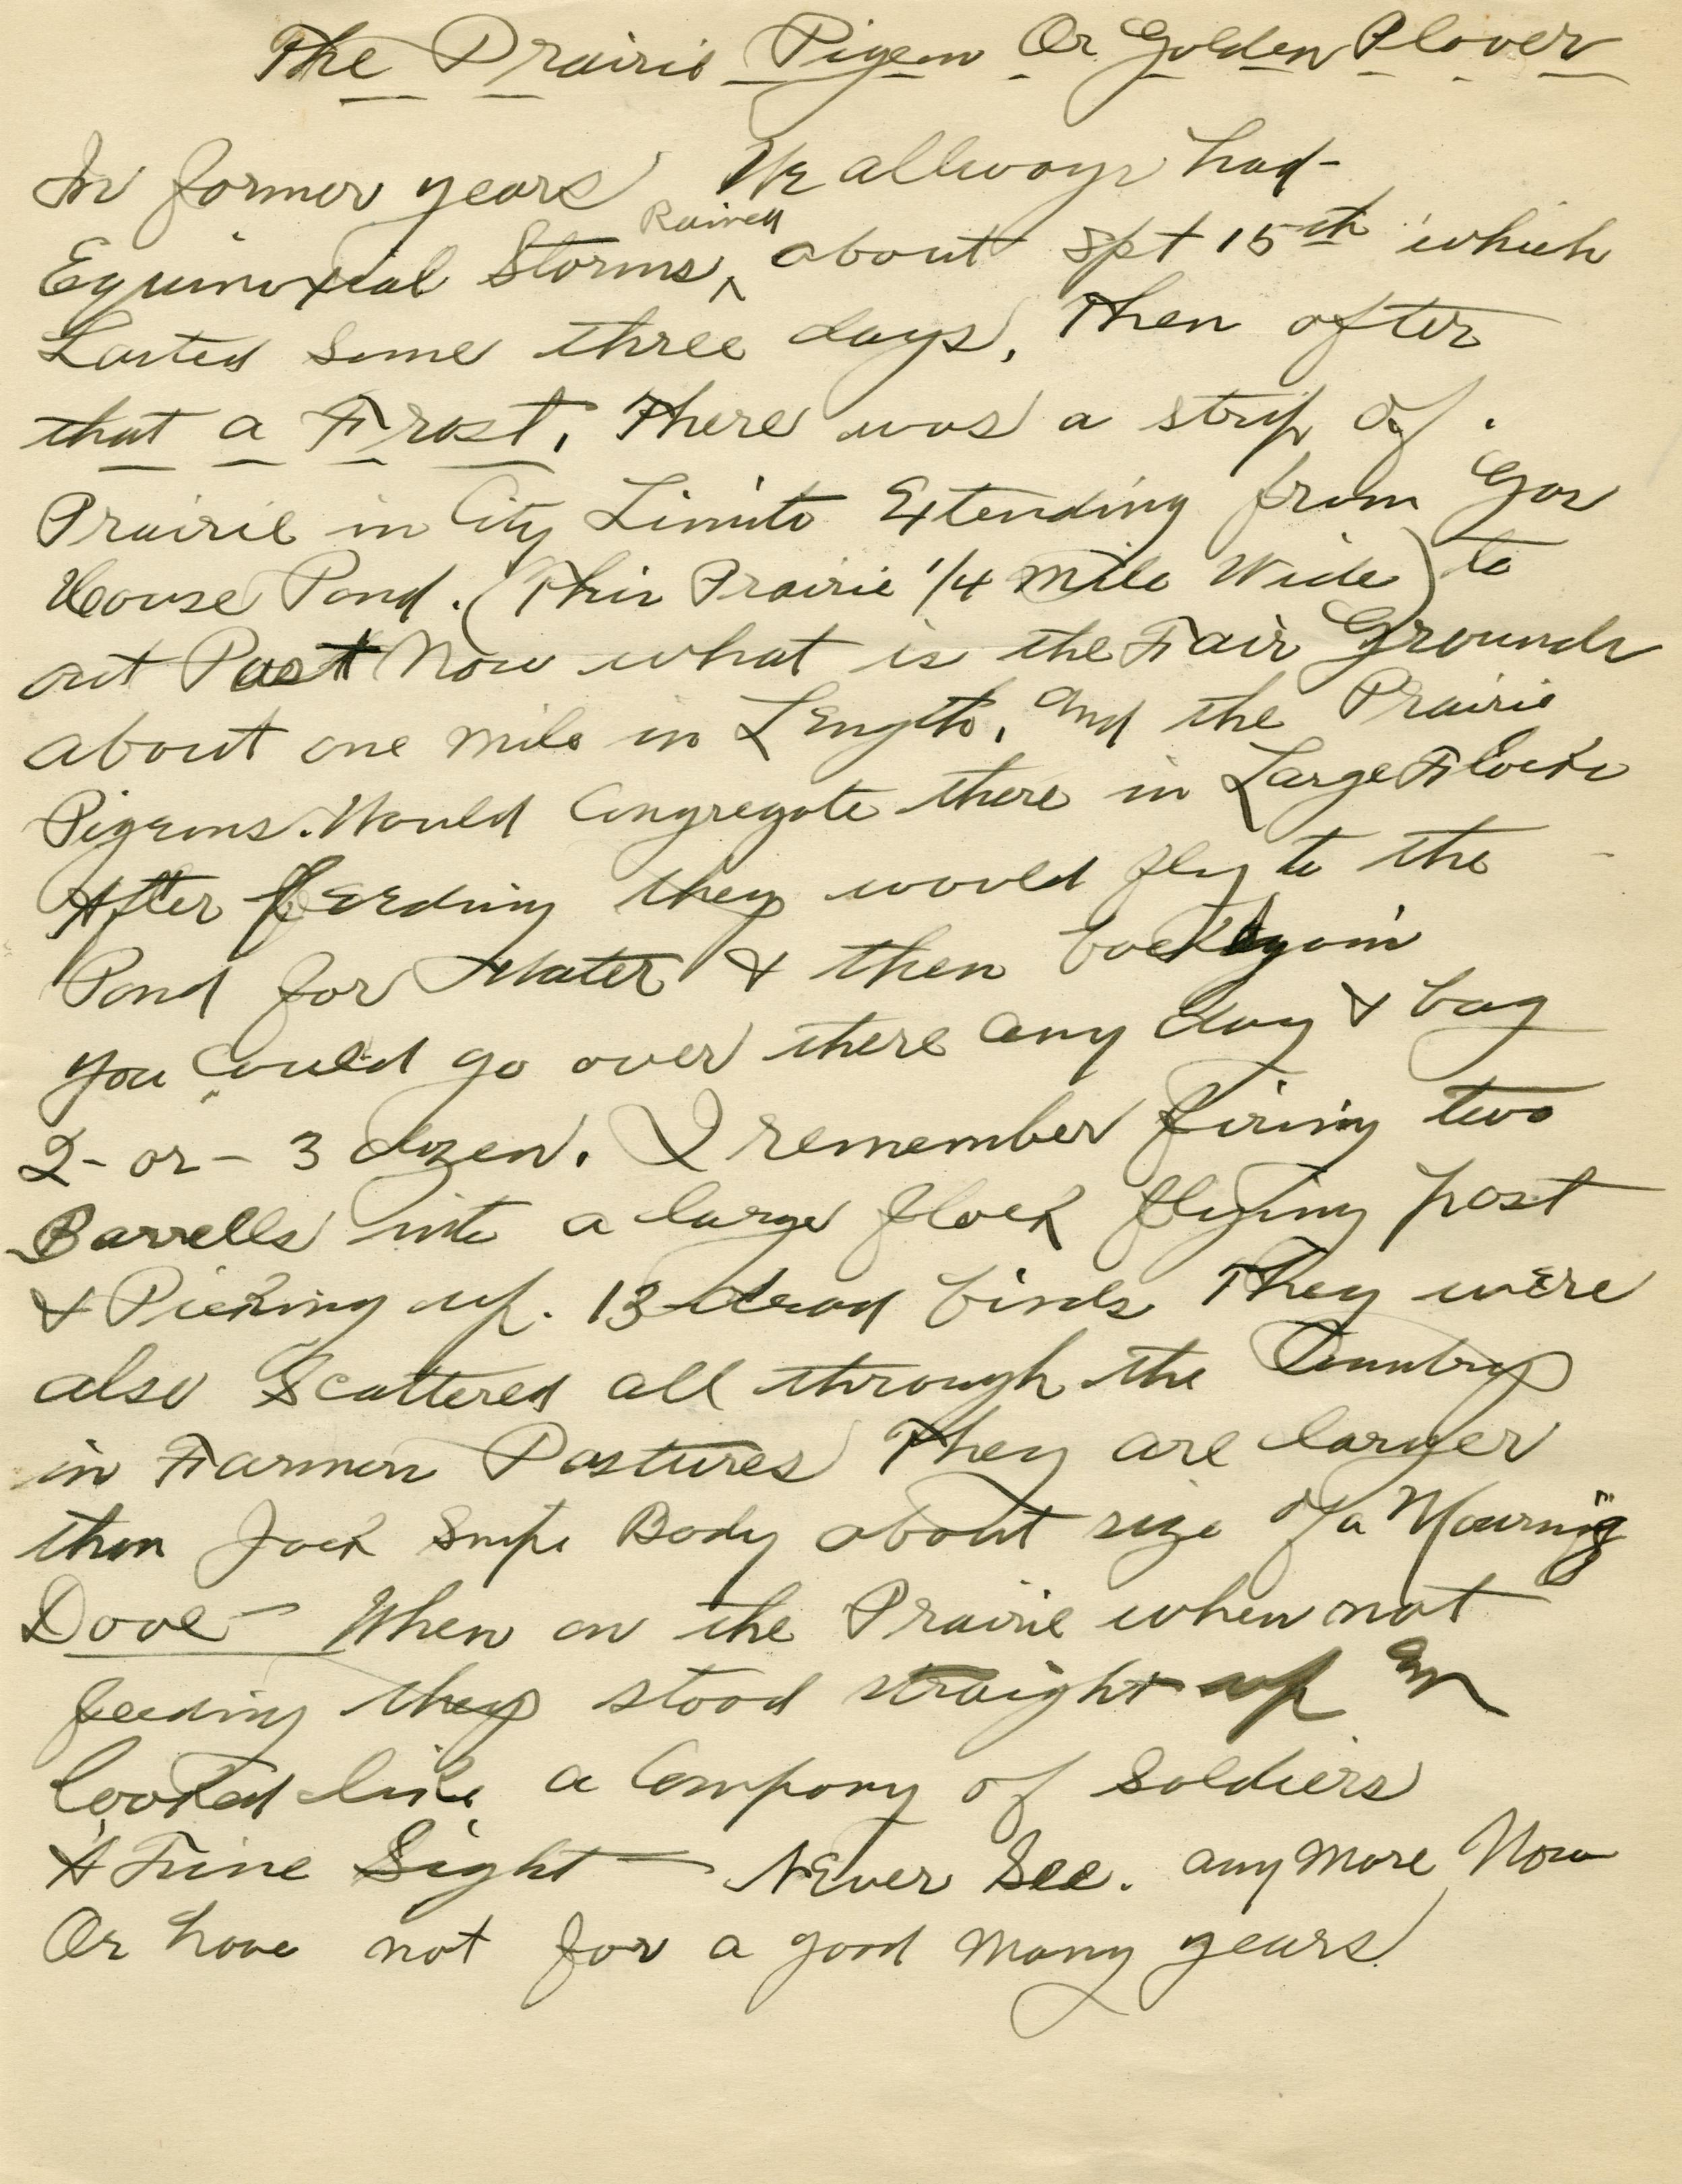 The Prairie Pigeon Or Golden Plover
In former years We allways had-
Equinoxial Storms, Rained about spt 15th which
Lasted some three days, Then after
that a Frost, There was a strip of.
Prairie in City Limits Extending from Gas
House Pond. (This Prairie 1/4 mile Wide) to
out Past Now what is the Fair Grounds
about one mile in Length, and the Prairie
Pigeons. Would Congregate there in Large Flocks
After feeding they would fly to the
Pond for Water & then back Again
you could go over there any day & bag
2- or - 3 dozen. I remember firing two
Barrells into a large flock flying past
& Picking up. 13 dead birds They were
also Scattered all through the Country
in Farmers Pastures They are larger
than Jack Snipe Body about size of a Mourning
Dove - When on the Prairie when not
feeding they stood straight up and
looked like a Company of Soldiers
A Fine Sight — Never See. any more Now
Or have not for a good many years.